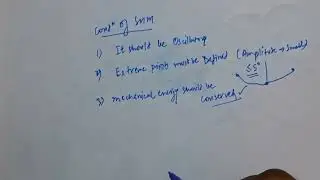 Condⁿ of SHM
1) It should be Oscillating
2) Extreme points must be Defined (Amplitude → small)
≤5°
3) mechanical energy should be
conserved